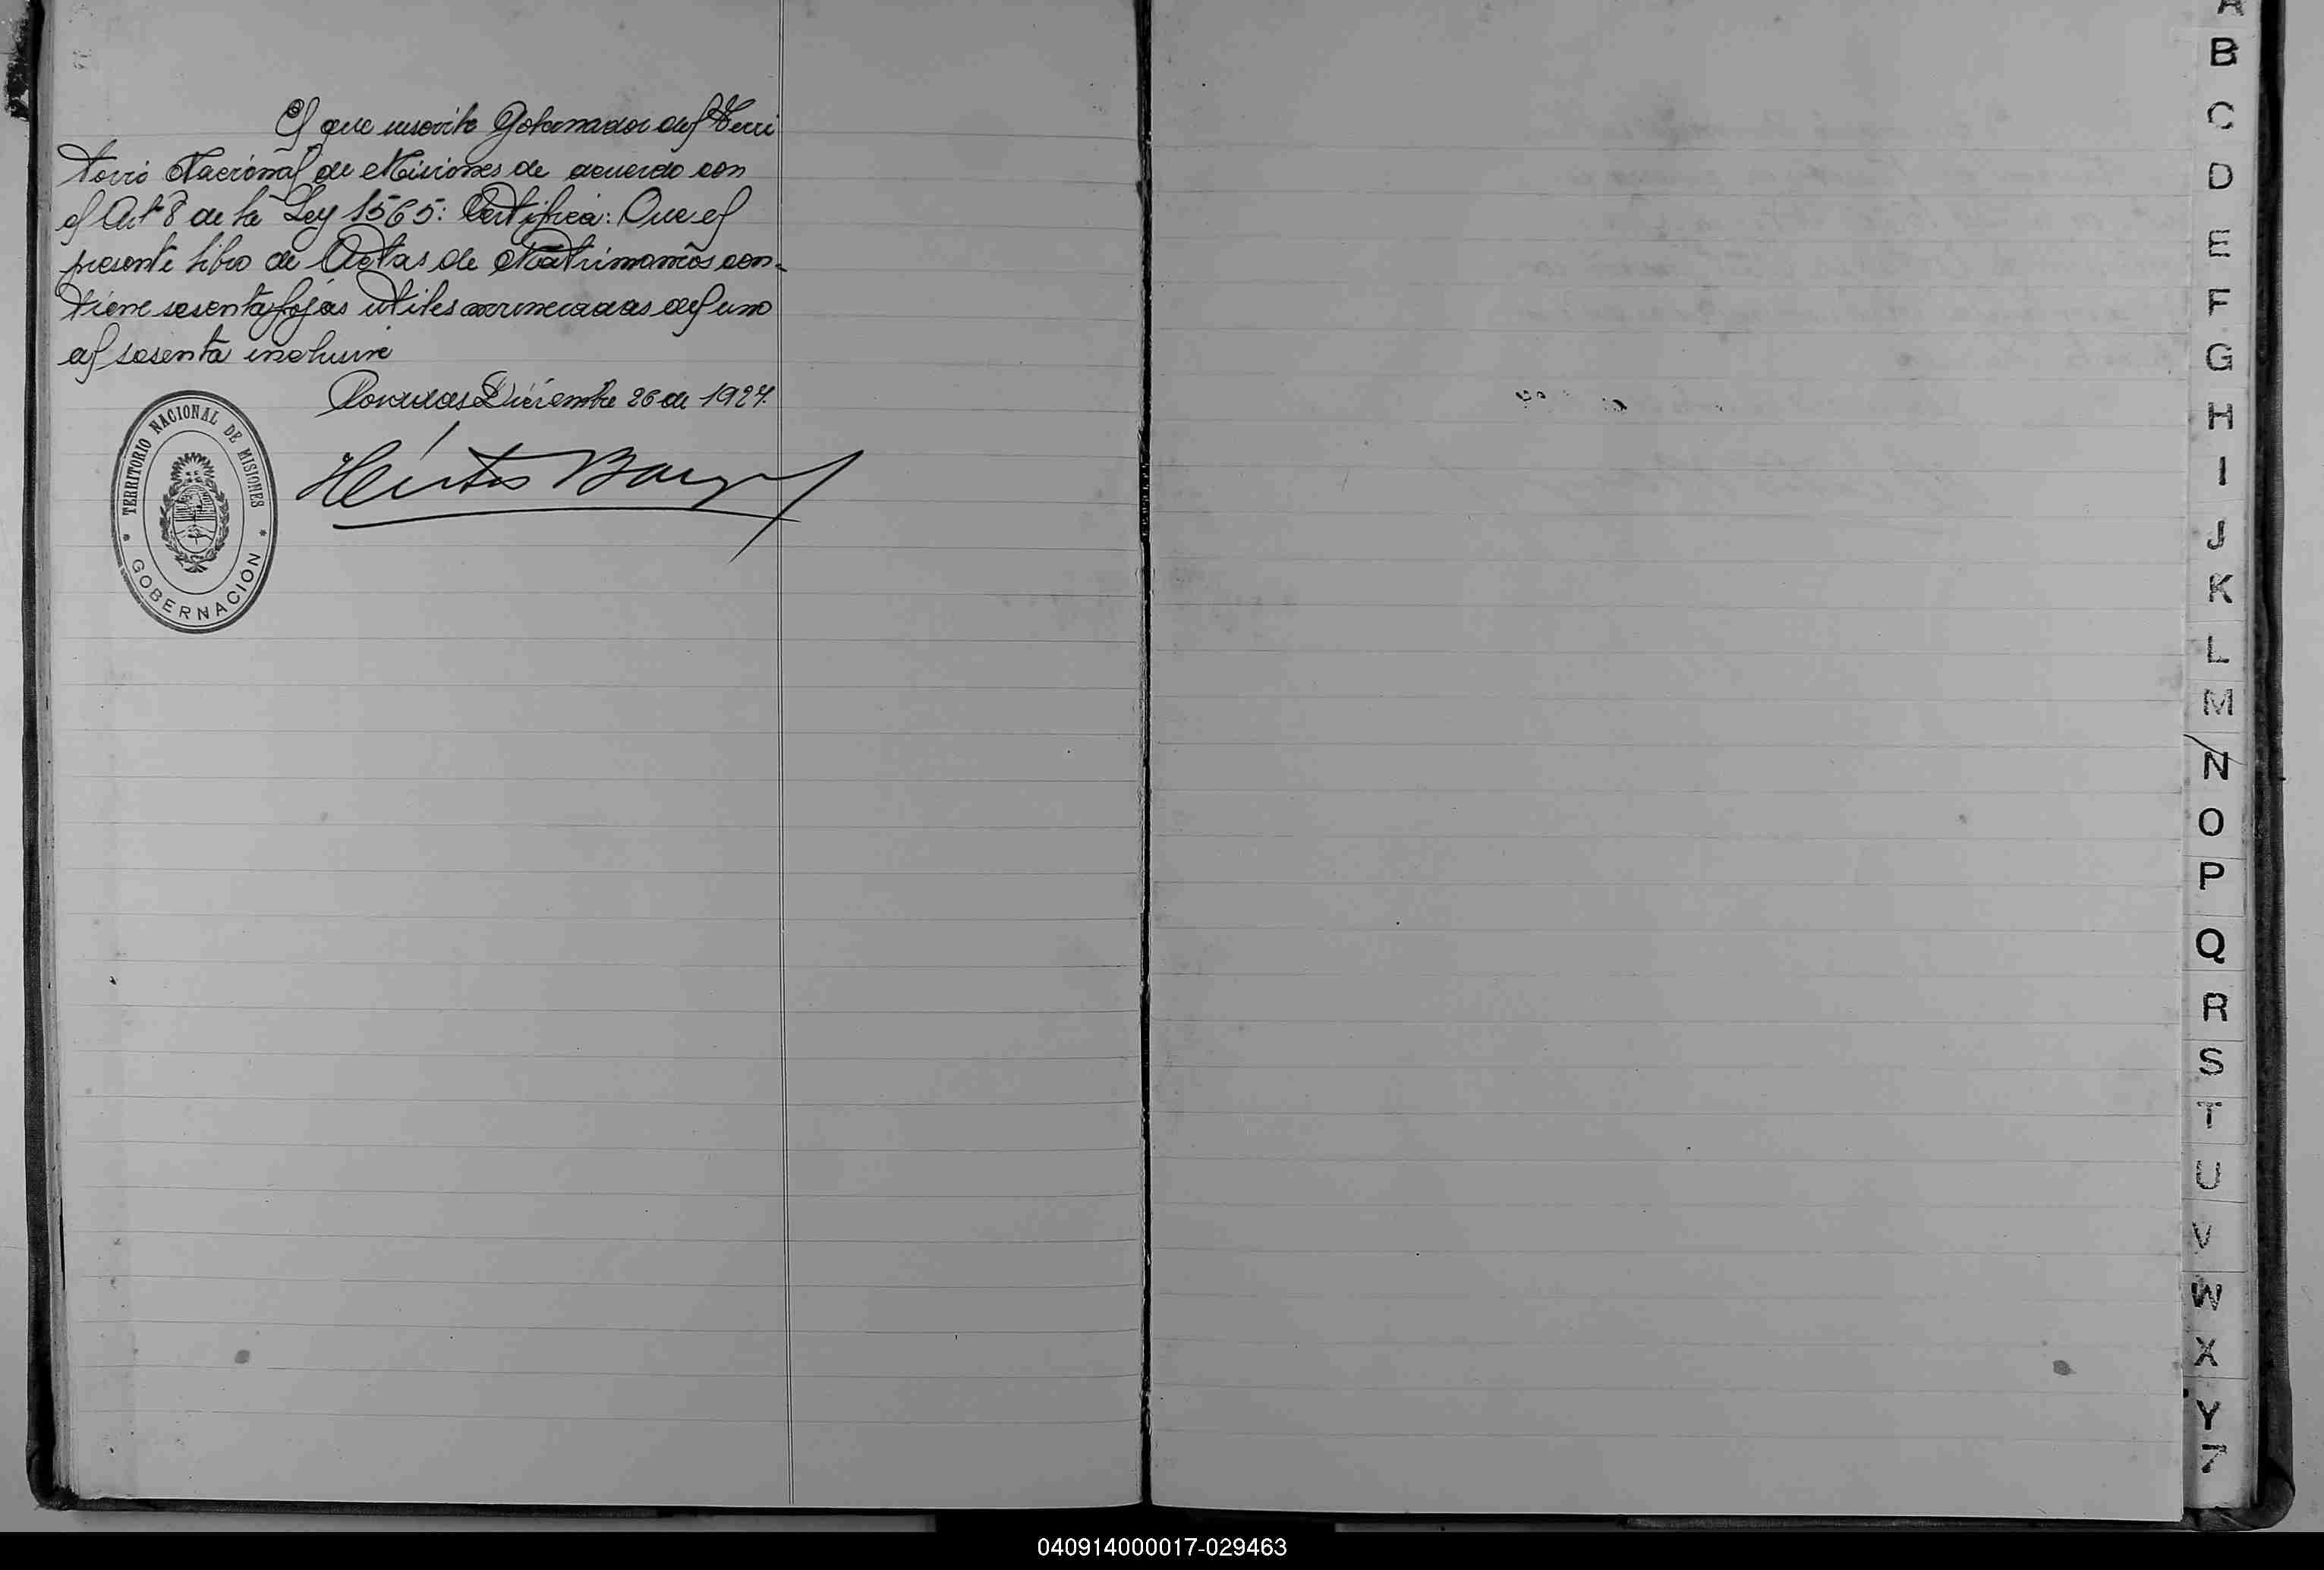 El que suscribe Gobernador del Terri
torio Nacional de Misiones de acuerdo con
el Art 8 de la Ley 1565: Certifica: Que el
presente libro de Actas de Matrimonios con-
tiene sesenta fojas utiles numeradas del uno
al sesenta inclusive
Posadas Diciembre 26 de 1924.
Héctor Barreyro
TERRITORIO NACIONAL DE MISIONES
* GOBERNACION *
A
B
C
D
E
F
G
H
I
J
K
L
M
N
O
P
Q
R
S
T
U
V
W
X
Y
Z
040914000017-029463